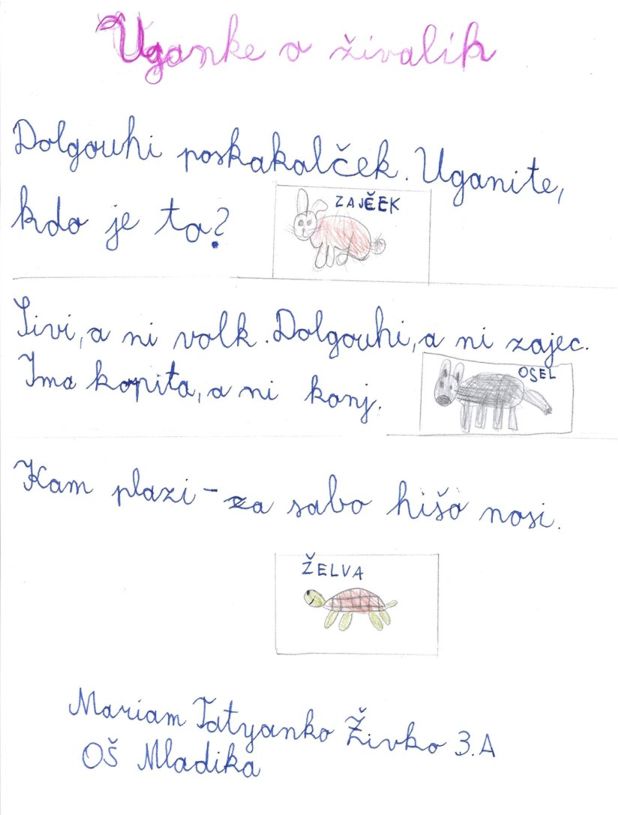 Uganke o živalih
Dolgouhi poskakalček. Uganite,
kdo je to?
ZAJČEK
Sivi, a ni volk. Dolgouhi, a ni zajec.
Ima kopita, a ni konj.
OSEL
Kam plazi - za sabo hišo nosi.
ŽELVA
Mariam Tatyanko Živko 3.A
OŠ Mladika